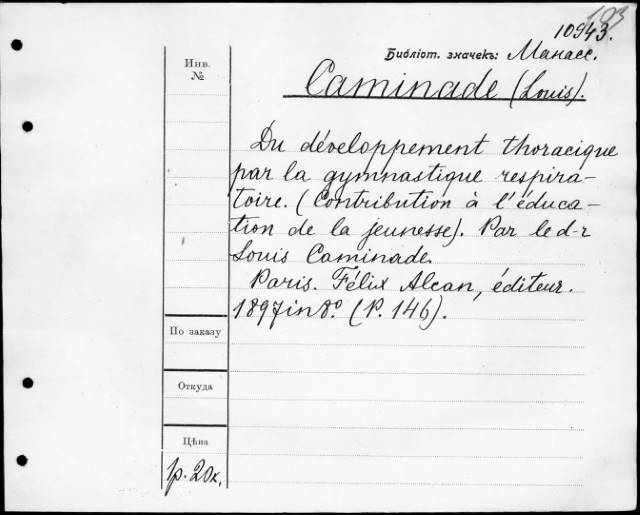 103
10943.
Библіот. значекъ: Манасс.
Инв.
№
Caminade (Louis).
Du développement thoracique
par la gymnastique respira-
toire. (Contribution à l'éduca-
tion de la jeunesse). Par le d-r
Louis Caminade.
Paris. Félix Alcan, éditeur.
1897 in 8º. (P. 146).
По заказу
Откуда
Цѣна
1р. 20к.